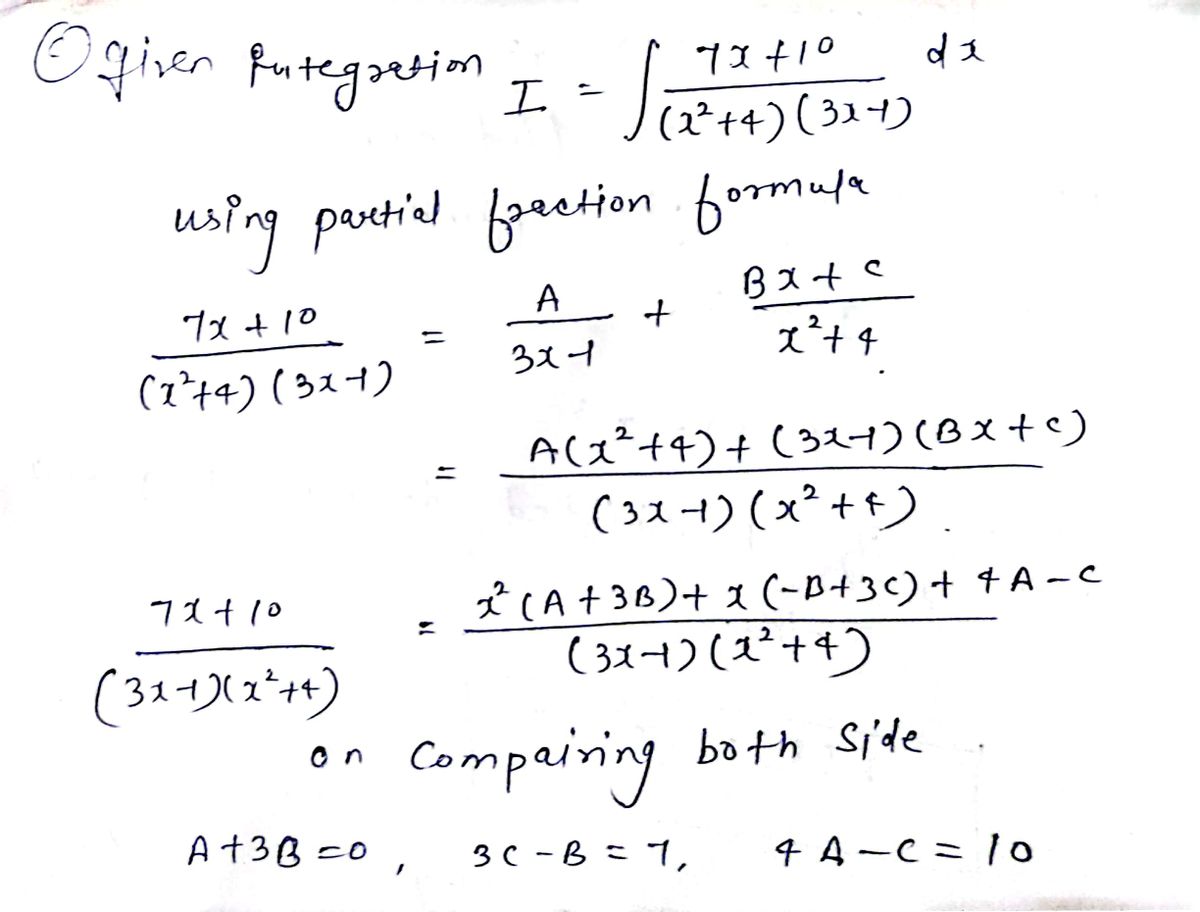 ① given Integration I = ∫ (7x+10)/((x²+4)(3x-1)) dx
using partial fraction formula
(7x+10)/((x²+4)(3x-1)) = A/(3x-1) + (Bx+c)/(x²+4)
= (A(x²+4)+(3x-1)(Bx+c))/((3x-1)(x²+4))
(7x+10)/((3x-1)(x²+4)) = (x²(A+3B)+x(-B+3c)+4A-c)/((3x-1)(x²+4))
on Compairing both Side
A+3B=0, 3c-B=7, 4A-c=10